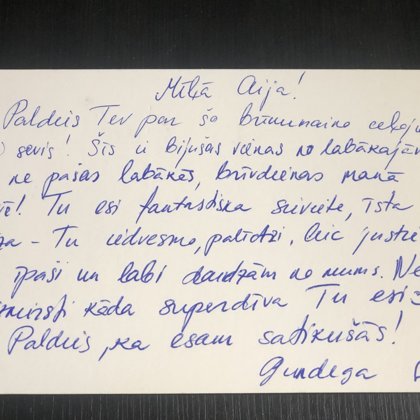 Mīļā Aija!
Paldies Tev par šo brīnumaino ceļoju
sevis! Šīs ir bijušas vienas no labākajām
ne pašas labākās, brīvdienas manā
Tu esi fantastiska sieviete, īsta
Tu iedvesmo, palīdzi, liec justie
īpaši un labi daudzām no mums. Ne
aizmirsti kāda superdīva Tu esi
Paldies, ka esam satikušās!
Gundega